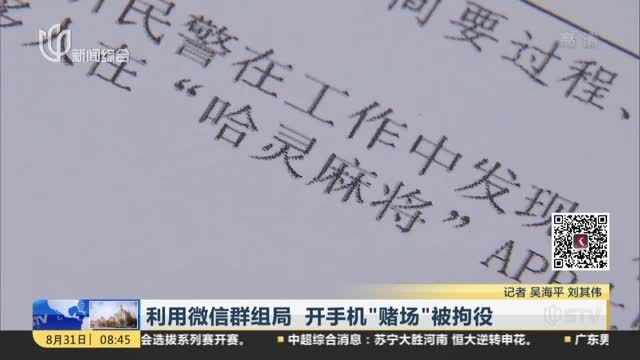 新闻综合
高清
间要过程、
所民警在工作中发现
多人在“哈灵麻将”APP
记者 吴海平 刘其伟
利用微信群组局 开手机"赌场"被拘役
8月31日 08:45 会选拔系列赛开赛。 • 中超综合消息：苏宁大胜河南 恒大逆转申花。 • 广东男